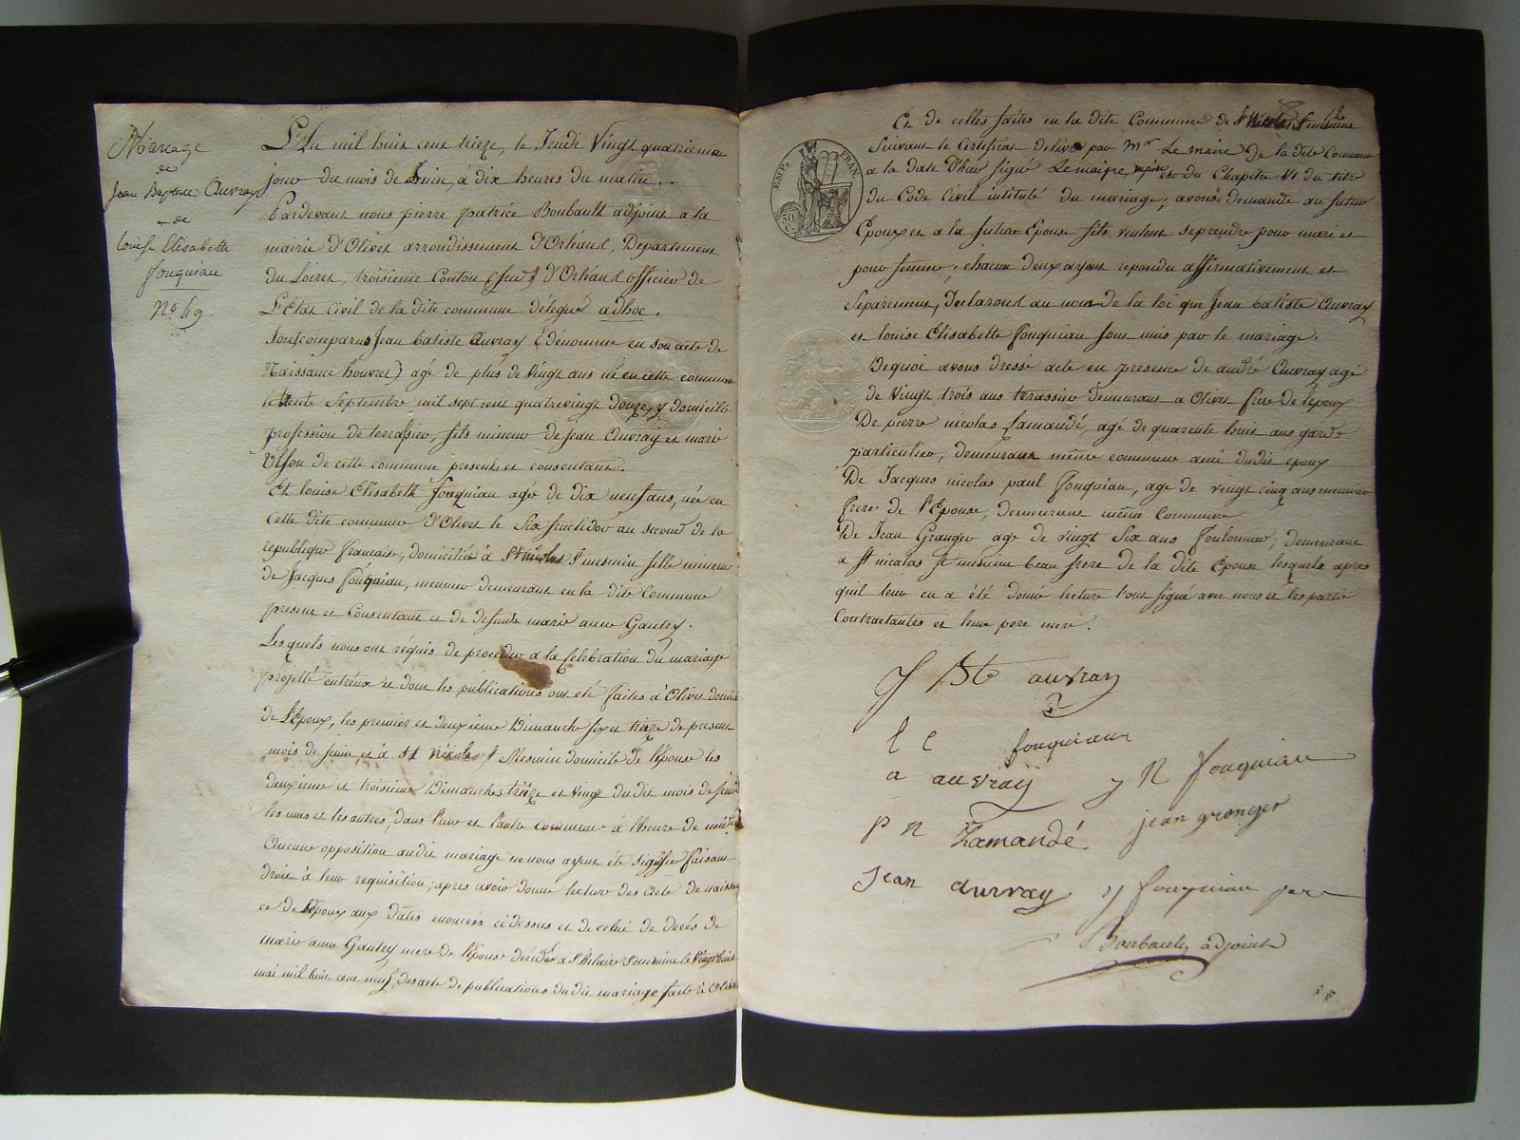 Mariage
de
Jean Baptiste Auvray
de
Louise Elisabette
fouquiau
No. 69
L'An mil huit cent treize, le Jeudi Vingt quatrieme
jour du mois de Juin, à dix heures du matin.
Pardevant nous pierre patrice Boubault adjoint a la
mairie d'Olivet arrondissement d'Orléans, Departement
du Loiret, troisieme Canton d'Orléans officier de
L'Etat Civil de la dite commune délégué adhoc.
Sont comparus Jean batiste Auvray dénommé en son acte de
Naissance agé de plus de Vingt ans né en cette commune
le trente Septembre mil sept cent quatrevingt douze, y domicilié
profession de terrassier, fils mineur de jean Auvray et marie
de cette commune presents et consentans.
Et louise Elisabeth fouquiau agée de dix neuf ans, née en
Cette dite commune d'Olivet le Six fructidor an second de la
republique francaise, domiciliée à St nicolas St mesmin fille mineure
de Jacques fouquiau, meunier demeurant en la dite Commune
present et Consentant et de defunte marie anne Gautry.
Lesquels nous ont requis de proceder a la Celebration du mariage
projetté entreux et dont les publications ont été faites à Olivet domicile
de l'Epoux, les premier et deuxieme Dimanche six et treize de present
mois de juin, et à St Nicolas St Mesmin domicile de l'épouse les
deuxieme et troisieme Dimanches treize et vingt du dit mois de juin
les uns et les autres, dans l'une et l'autre commune à l'heure de midi
Aucune opposition audit mariage ne nous ayant été signifiée faisant
droit à leur requisition; apres avoir donné lecture des Acte de naissance
et de l'époux aux dates enoncées cidessus et de celui de decés de
marie anne Gautry mere de l'épouse decedée a St hilaire St mesmin le vingt huit
mai mil huit cent neuf, des acte de publications du dit mariage faite à Olivet
Et de celles faites en la dite Commune de St Nicolas St mesmin
Suivant le Certificat delivré par Mr Le maire de la dite Commune
a la date D'hier signé Lemaigre du Chapitre VI du titre
du Code Civil intitulé du mariage, avons demandé au futur
Epoux et a la future Epouse s'ils veulent se prendre pour mari et
pour femme; chacun deux ayant repondu affirmativement et
Separement, Declarons au nom de la loi que Jean batiste Auvray
et louise Elisabette fouquiau sont unis par le mariage.
Dequoi avons dressé acte en presence de andré Auvray agé
de Vingt trois ans terrassier demeurant a Olivet frere de l'époux
De pierre nicolas Lamandé, agé de quarente huit ans garde
particulier, demeurant même commune ami dudit epoux
De Jacques nicolas paul fouquiau, agé de vingt cinq ans meunier
frere de l'Epouse, demeurant même Commune
De Jean Granger agé de vingt Six ans Foulonnier, demeurant
a St nicolas St mesmin beau frere de la dite Epouse lesquels apres
quil leur en a été donné lecture l'ont signé avec nous et les partie
Contractantes et leur pere mere.
J Bte auvray
l e fouquiaux
a auvray
j N fouquiau
p n Lamandé
jean granger
Jean Auvray
j fouquiau pere
Boubault adjoint